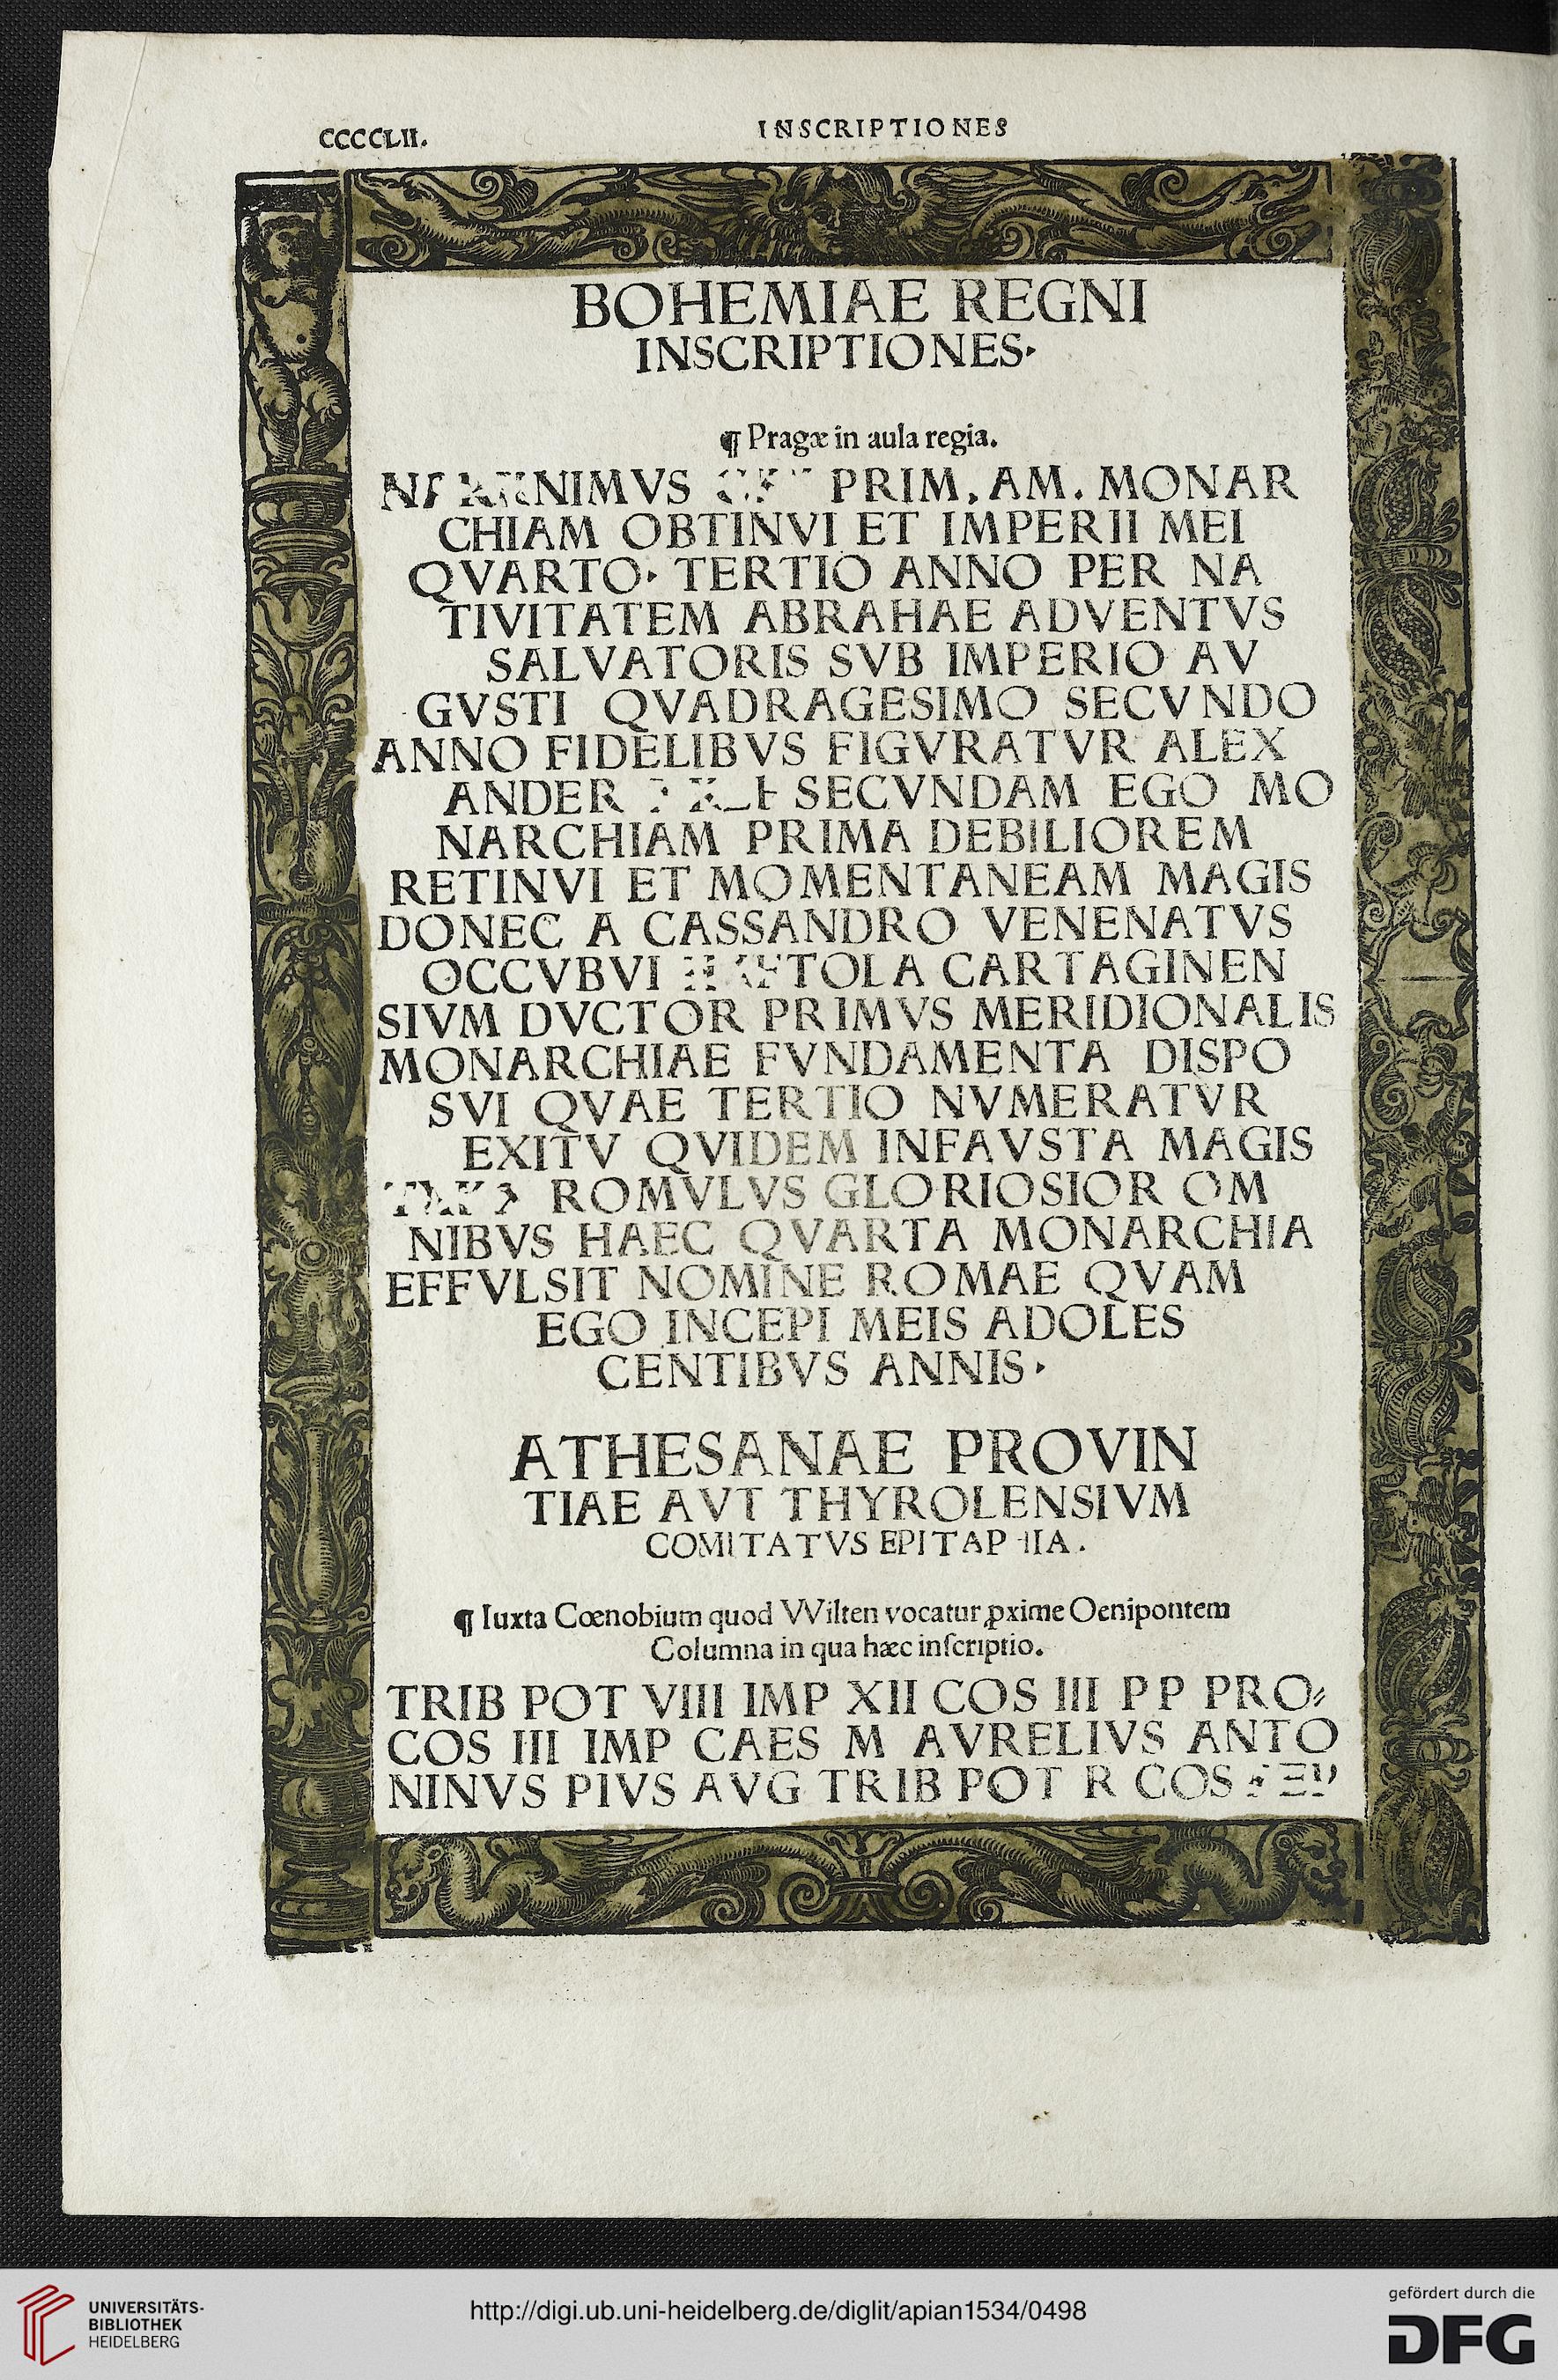 CCCCLII.
INSCRIPTIONES
BOHEMIAE REGNI
INSCRIPTIONES.
¶ Pragæ in aula regia.
PRIM. AM. MONAR
CHIAM OBTINVI ET IMPERII MEI
QVARTO. TERTIO ANNO PER NA
TIVITATEM ABRAHAE ADVENTVS
SALVATORIS SVB IMPERIO AV
GVSTI QVADRAGESIMO SECVNDO
ANNO FIDELIBVS FIGVRATVR ALEX
ANDER SECVNDAM EGO MO
NARCHIAM PRIMA DEBILIOREM
RETINVI ET MOMENTANEAM MAGIS
DONEC A CASSANDRO VENENATVS
OCCVBVI CARTAGINEN
SIVM DVCTOR PRIMVS MERIDIONALIS
MONARCHIAE FVNDAMENTA DISPO
SVI QVAE TERTIO NVMERATVR
EXITV QVIDEM INFAVSTA MAGIS
ROMVLVS GLORIOSIOR OM
NIBVS HAEC QVARTA MONARCHIA
EFFVLSIT NOMINE ROMAE QVAM
EGO INCEPI MEIS ADOLES
CENTIBVS ANNIS.
ATHESANAE PROVIN
TIAE AVT THYROLENSIVM
COMITATVS EPITAPHIA.
¶ Iuxta Cœnobium quod VVilten vocatur ꝓxime Oenipontem
Columna in qua hæc inſcriptio.
TRIB POT VIIII IMP XII COS III P P PRO⸗
COS III IMP CAES M AVRELIVS ANTO
NINVS PIVS AVG TRIB POT R COS
UNIVERSITÄTS-
BIBLIOTHEK
HEIDELBERG
http://digi.ub.uni-heidelberg.de/diglit/apian1534/0498
gefördert durch die
DFG